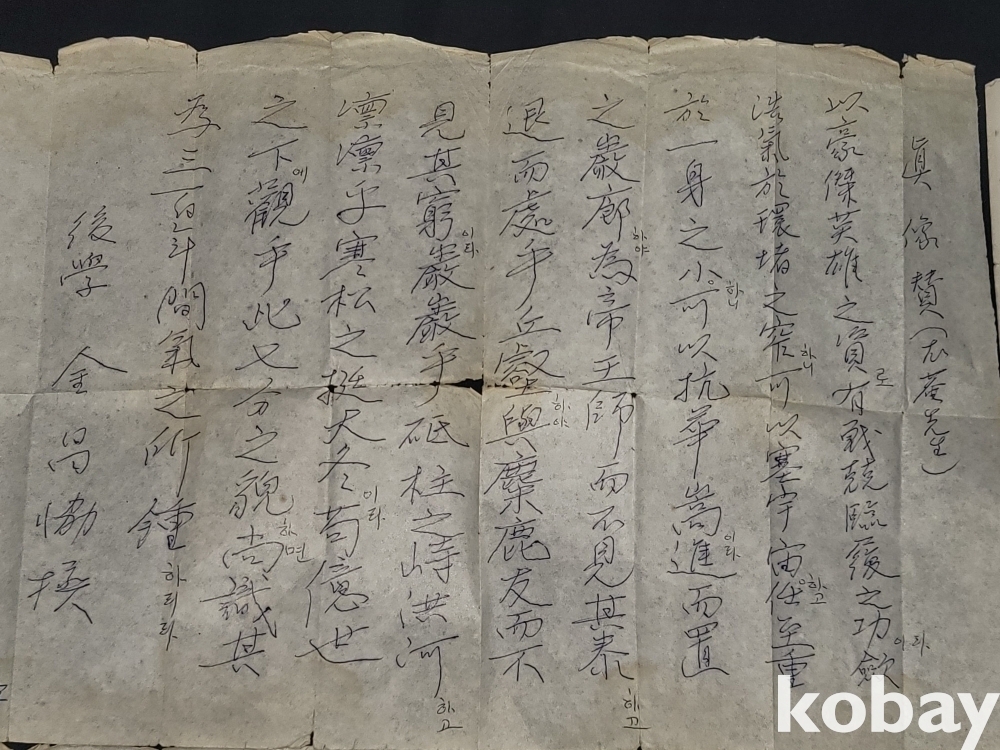 眞像賛(尤菴先生)
以豪傑英雄之資로有戰兢臨履之功이라斂
浩氣於環堵之窄하니可以塞宇宙하고任至重
於一身之小하니可以抗華嵩이라進而置
之巖廊하야為帝王師而不見其泰하고
退而處乎丘壑하야與麋鹿友而不
見其窮이라巖巖乎砥柱之峙洪河하고
凛凛乎寒松之挺大冬이라苟億世
之下에觀乎此七分之貌하면尚識其
為三百年間氣之所鍾하리라
後學 金昌協 撰
kobay